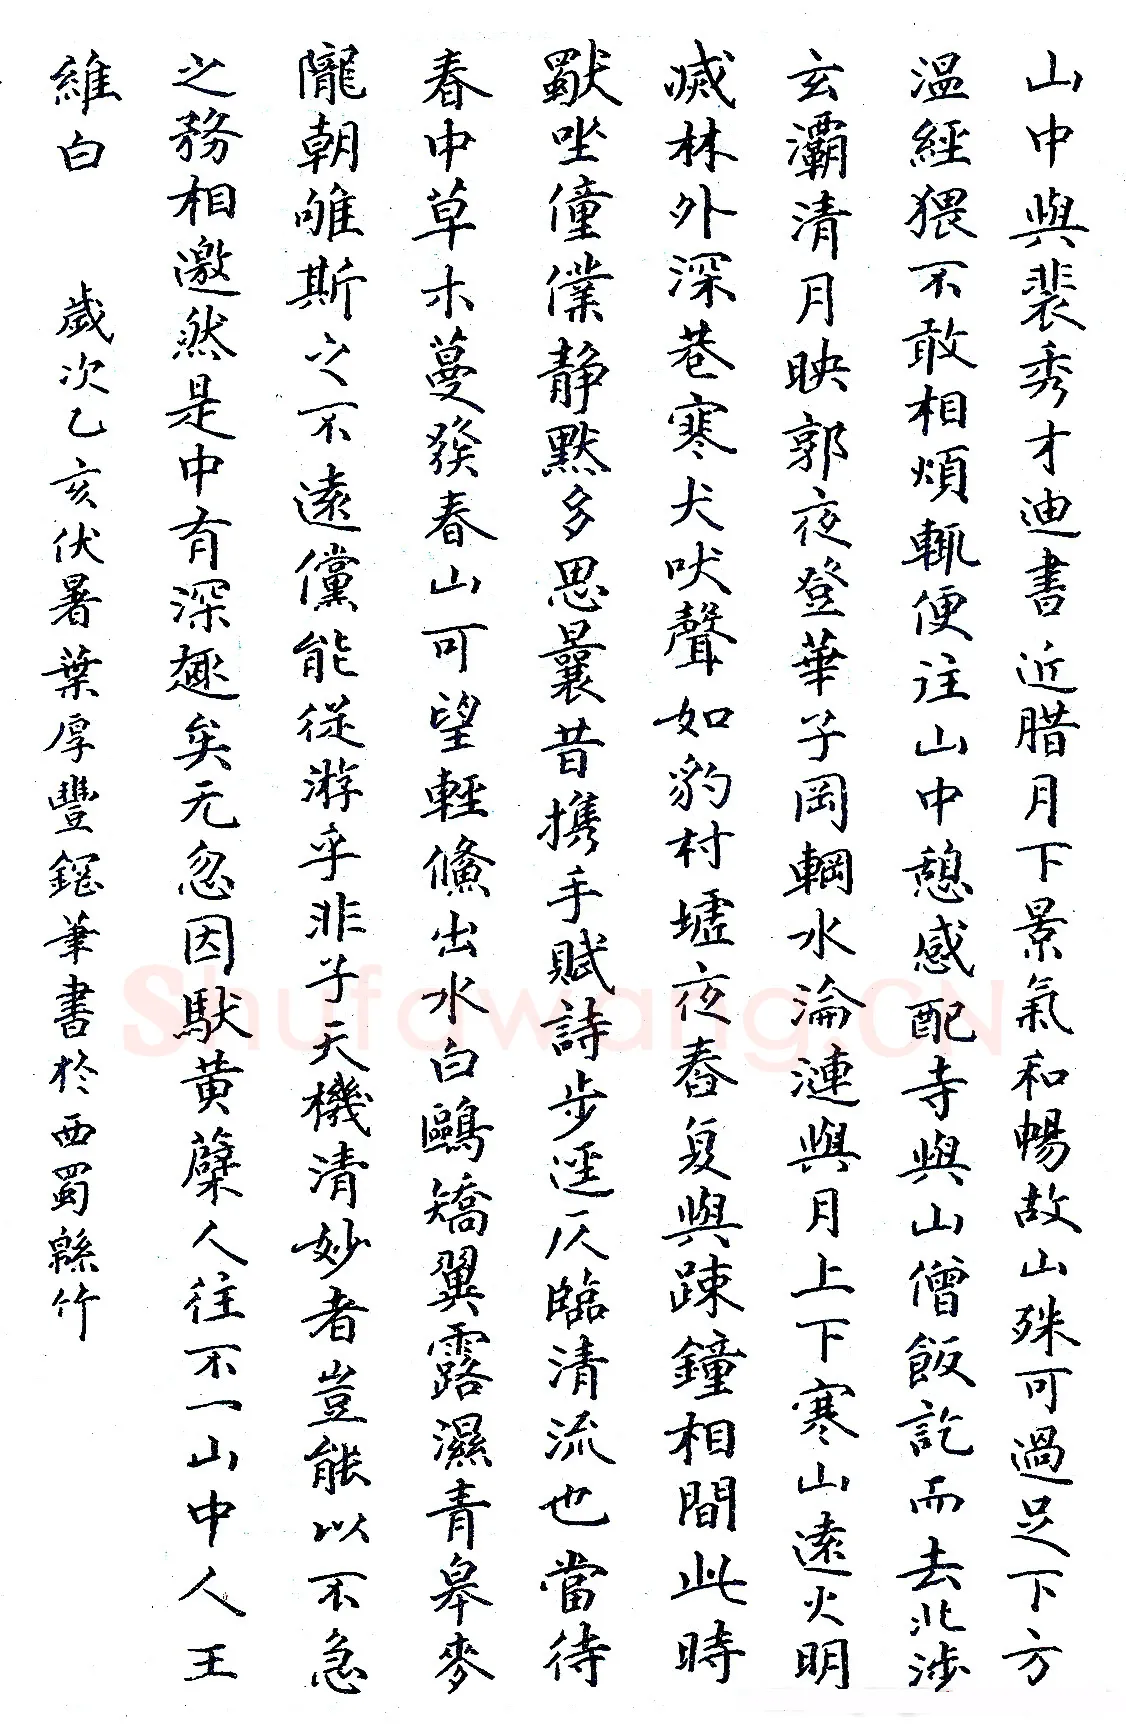 山中與裴秀才迪書近腊月下景氣和暢故山殊可過足下方
温經猥不敢相煩輒便往山中憩感配寺與山僧飯訖而去北涉
玄灞清月映郭夜登華子岡輞水淪漣與月上下寒山遠火明
滅林外深巷寒犬吠聲如豹村墟夜舂复與疎鐘相間此時
獨坐僮僕静默多思曩昔携手賦詩步逕仄臨清流也當待
春中草木蔓發春山可望輕鯈出水白鷗矯翼露濕青皋麥
隴朝雊斯之不遠儻能從游乎非子天機清妙者豈能以不急
之務相邀然是中有深趣矣无忽因馱黄蘗人往不一山中人王
維白 歲次乙亥伏暑葉厚豐鋼筆書於西蜀緜竹
Shufawang.CN